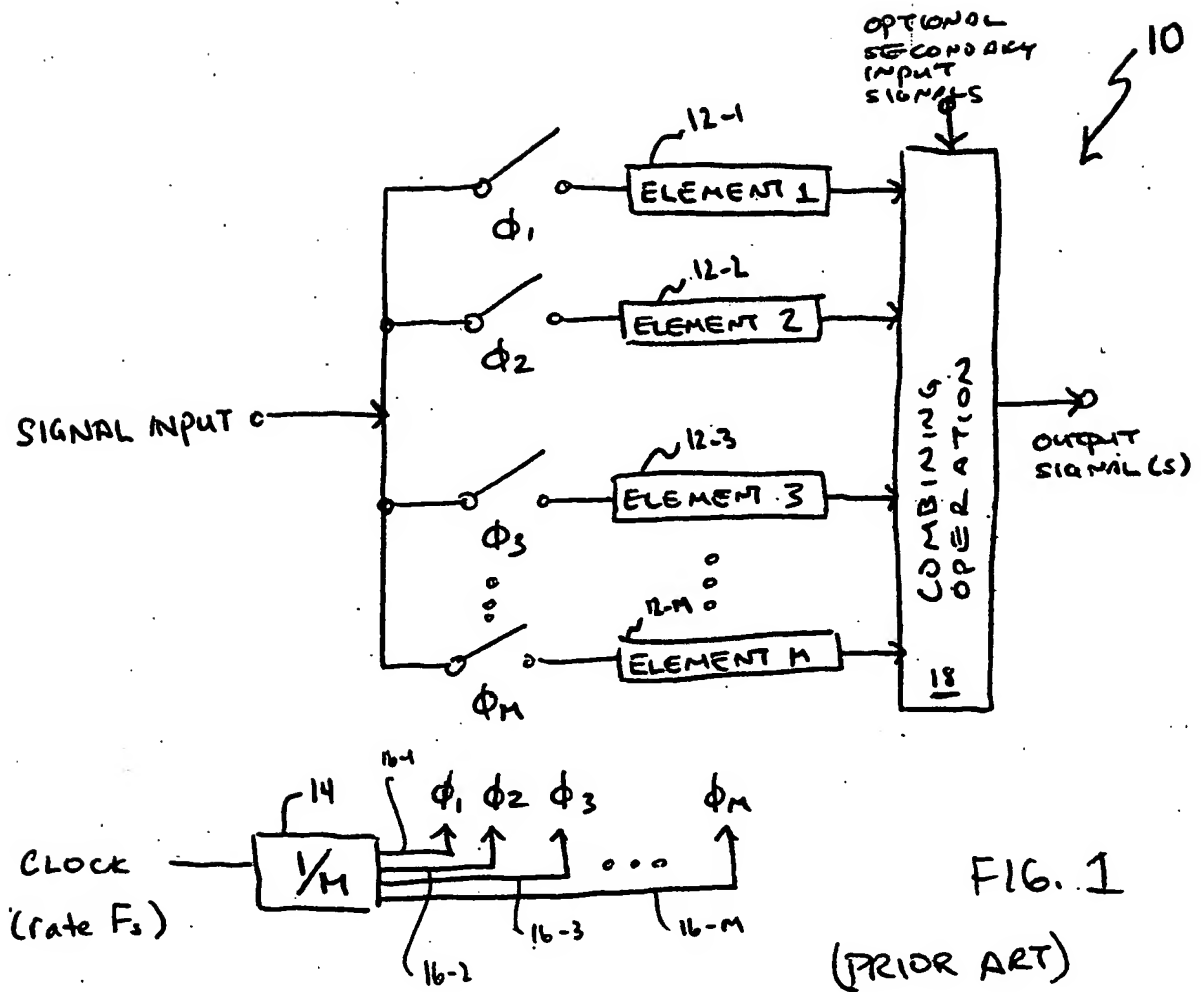 OPTIONAL
SECONDARY
INPUT
SIGNALS
10
12-1
ELEMENT 1
Φ1
12-2
ELEMENT 2
Φ2
SIGNAL INPUT
12-3
ELEMENT 3
Φ3
12-M
ELEMENT M
ΦM
COMBINING
OPERATION
18
OUTPUT
SIGNAL(S)
14
16-1
Φ1 Φ2 Φ3 ΦM
CLOCK
(rate Fs)
1/M
16-2
16-3
16-M
FIG. 1
(PRIOR ART)